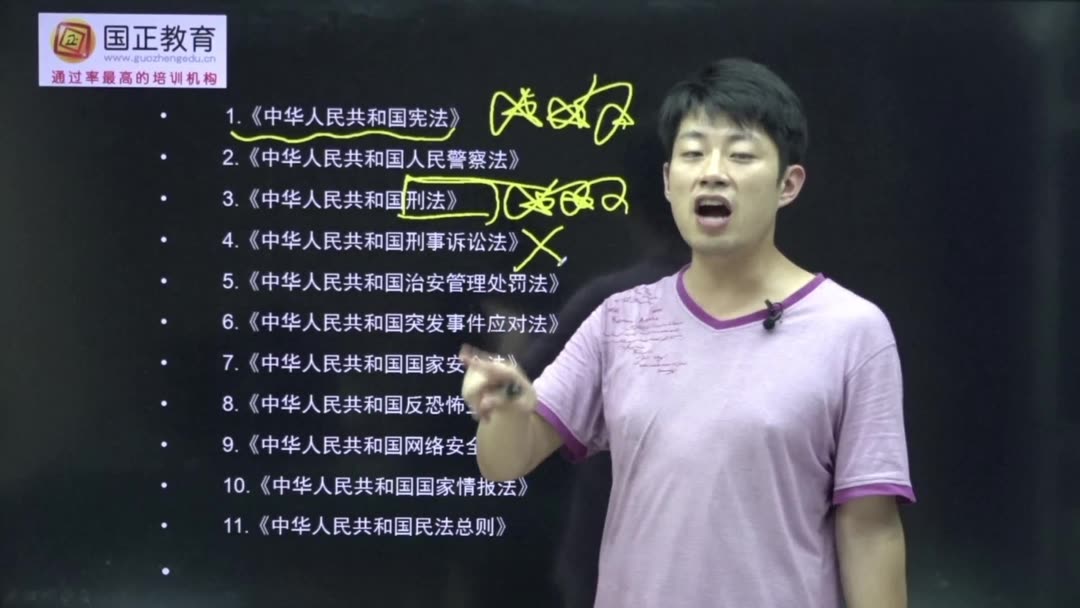 国正教育
www.guozhengedu.cn
通过率最高的培训机构
1.《中华人民共和国宪法》
2.《中华人民共和国人民警察法》
3.《中华人民共和国刑法》
4.《中华人民共和国刑事诉讼法》
5.《中华人民共和国治安管理处罚法》
6.《中华人民共和国突发事件应对法》
7.《中华人民共和国国家安全法》
8.《中华人民共和国反恐怖
9.《中华人民共和国网络安全
10.《中华人民共和国国家情报法》
11.《中华人民共和国民法总则》